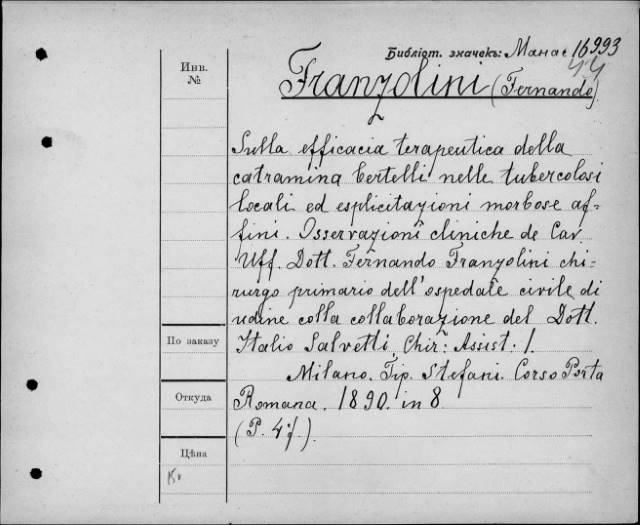 Библіот. значекъ: Манас 16993
44
Инв.
№
Franzolini (Fernando)
Sulla efficacia terapeutica della
catramina Bertelli nelle tubercolosi
locali ed esplicitazioni morbose af-
fini. Osservazioni cliniche de Cav.
Uff. Dott. Fernando Franzolini chi-
rurgo primario dell'ospedale civile di
udine colla collaborazione del Dott.
По заказу
Italio Salvetti, Chir: Assist: 1.
Milano. Tip. Stefani. Corso Porta
Откуда
Romana. 1890. in 8
(P. 47).
Цѣна